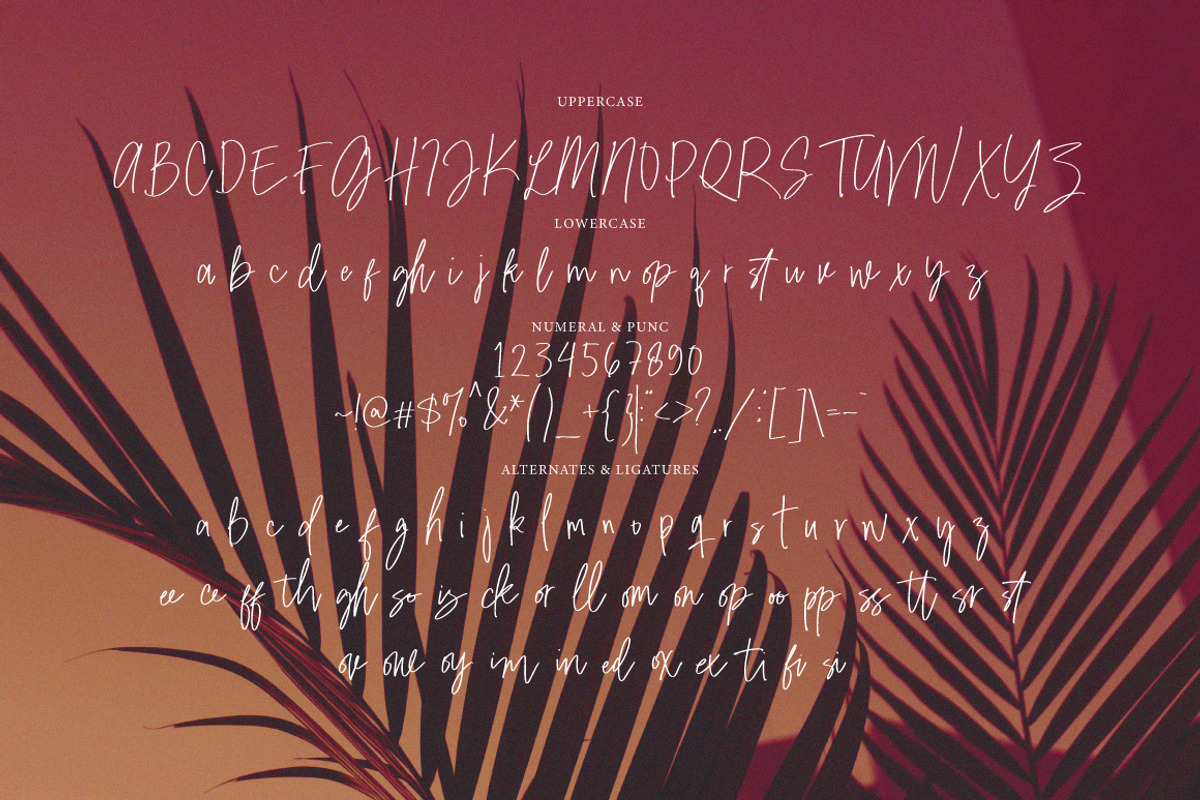 UPPERCASE
ABCDEFGHIJKLMNOPQRSTUVWXYZ
LOWERCASE
a b c d e f gh i j k l m n op q r st u v w x y z
NUMERAL & PUNC
1234567890
~!@#$%^&*()_+{}|:"<>?,./;:[]\=-–`
ALTERNATES & LIGATURES
a b c d e f g h i j k l m n o p q r s t u v w x y z
ee ce ff th gh so is ck or ll om on op oo pp ss tt sr st
ov ow oy im in ed ox ex ti fi si